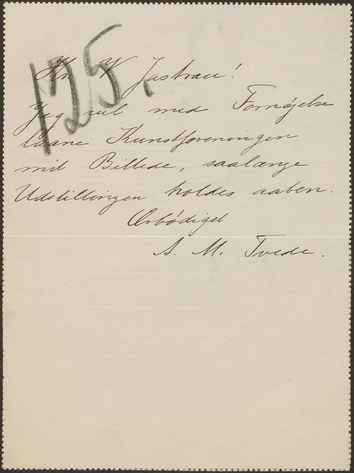 125.
Hr. W. Jastrau!
Jeg vil med Fornøjelse
laane Kunstforeningen
mit Billede, saalænge
Udstillingen holdes aaben.
Ærbødigst
A. M. Tvede.